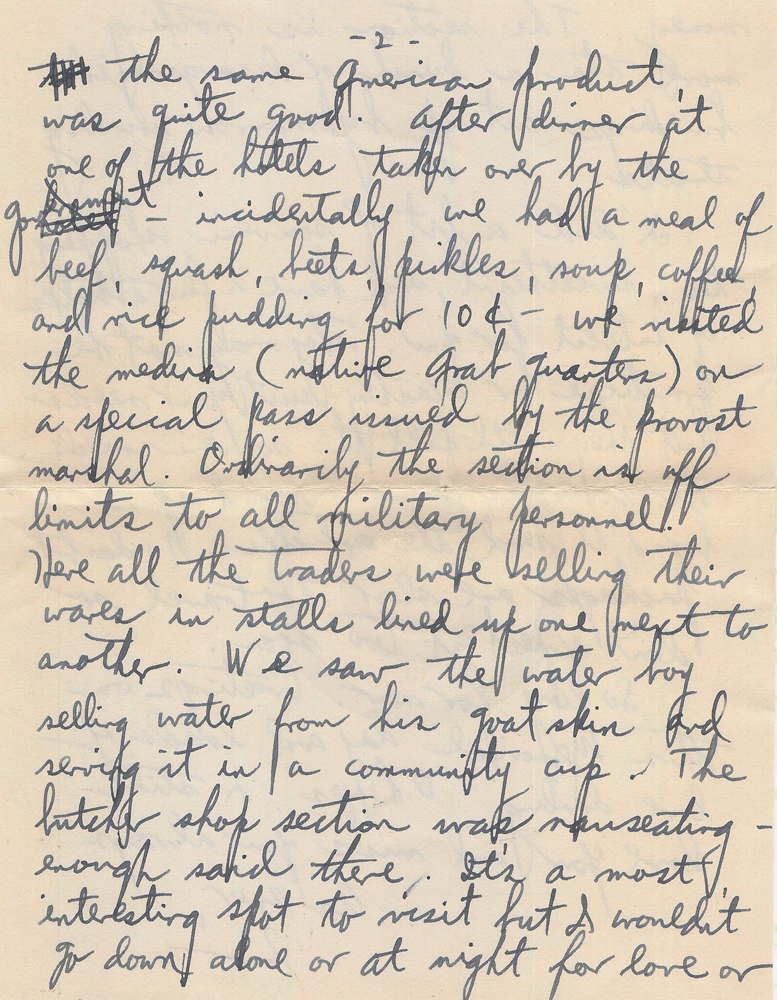 - 2 -
the same American product,
was quite good. After dinner at
one of the hotels taken over by the
government - incidentally we had a meal of
beef, squash, beets, pickles, soup, coffee,
and rice pudding for 10¢ - we visited
the medina (native Arab quarters) on
a special pass issued by the provost
marshal. Ordinarily the section is off
limits to all military personnel.
Here all the traders were selling their
wares in stalls lined up one next to
another. We saw the water boy
selling water from his goat skin and
serving it in a community cup. The
butcher shop section was nauseating -
enough said there. It's a most
interesting spot to visit but I wouldn't
go down alone or at night for love or